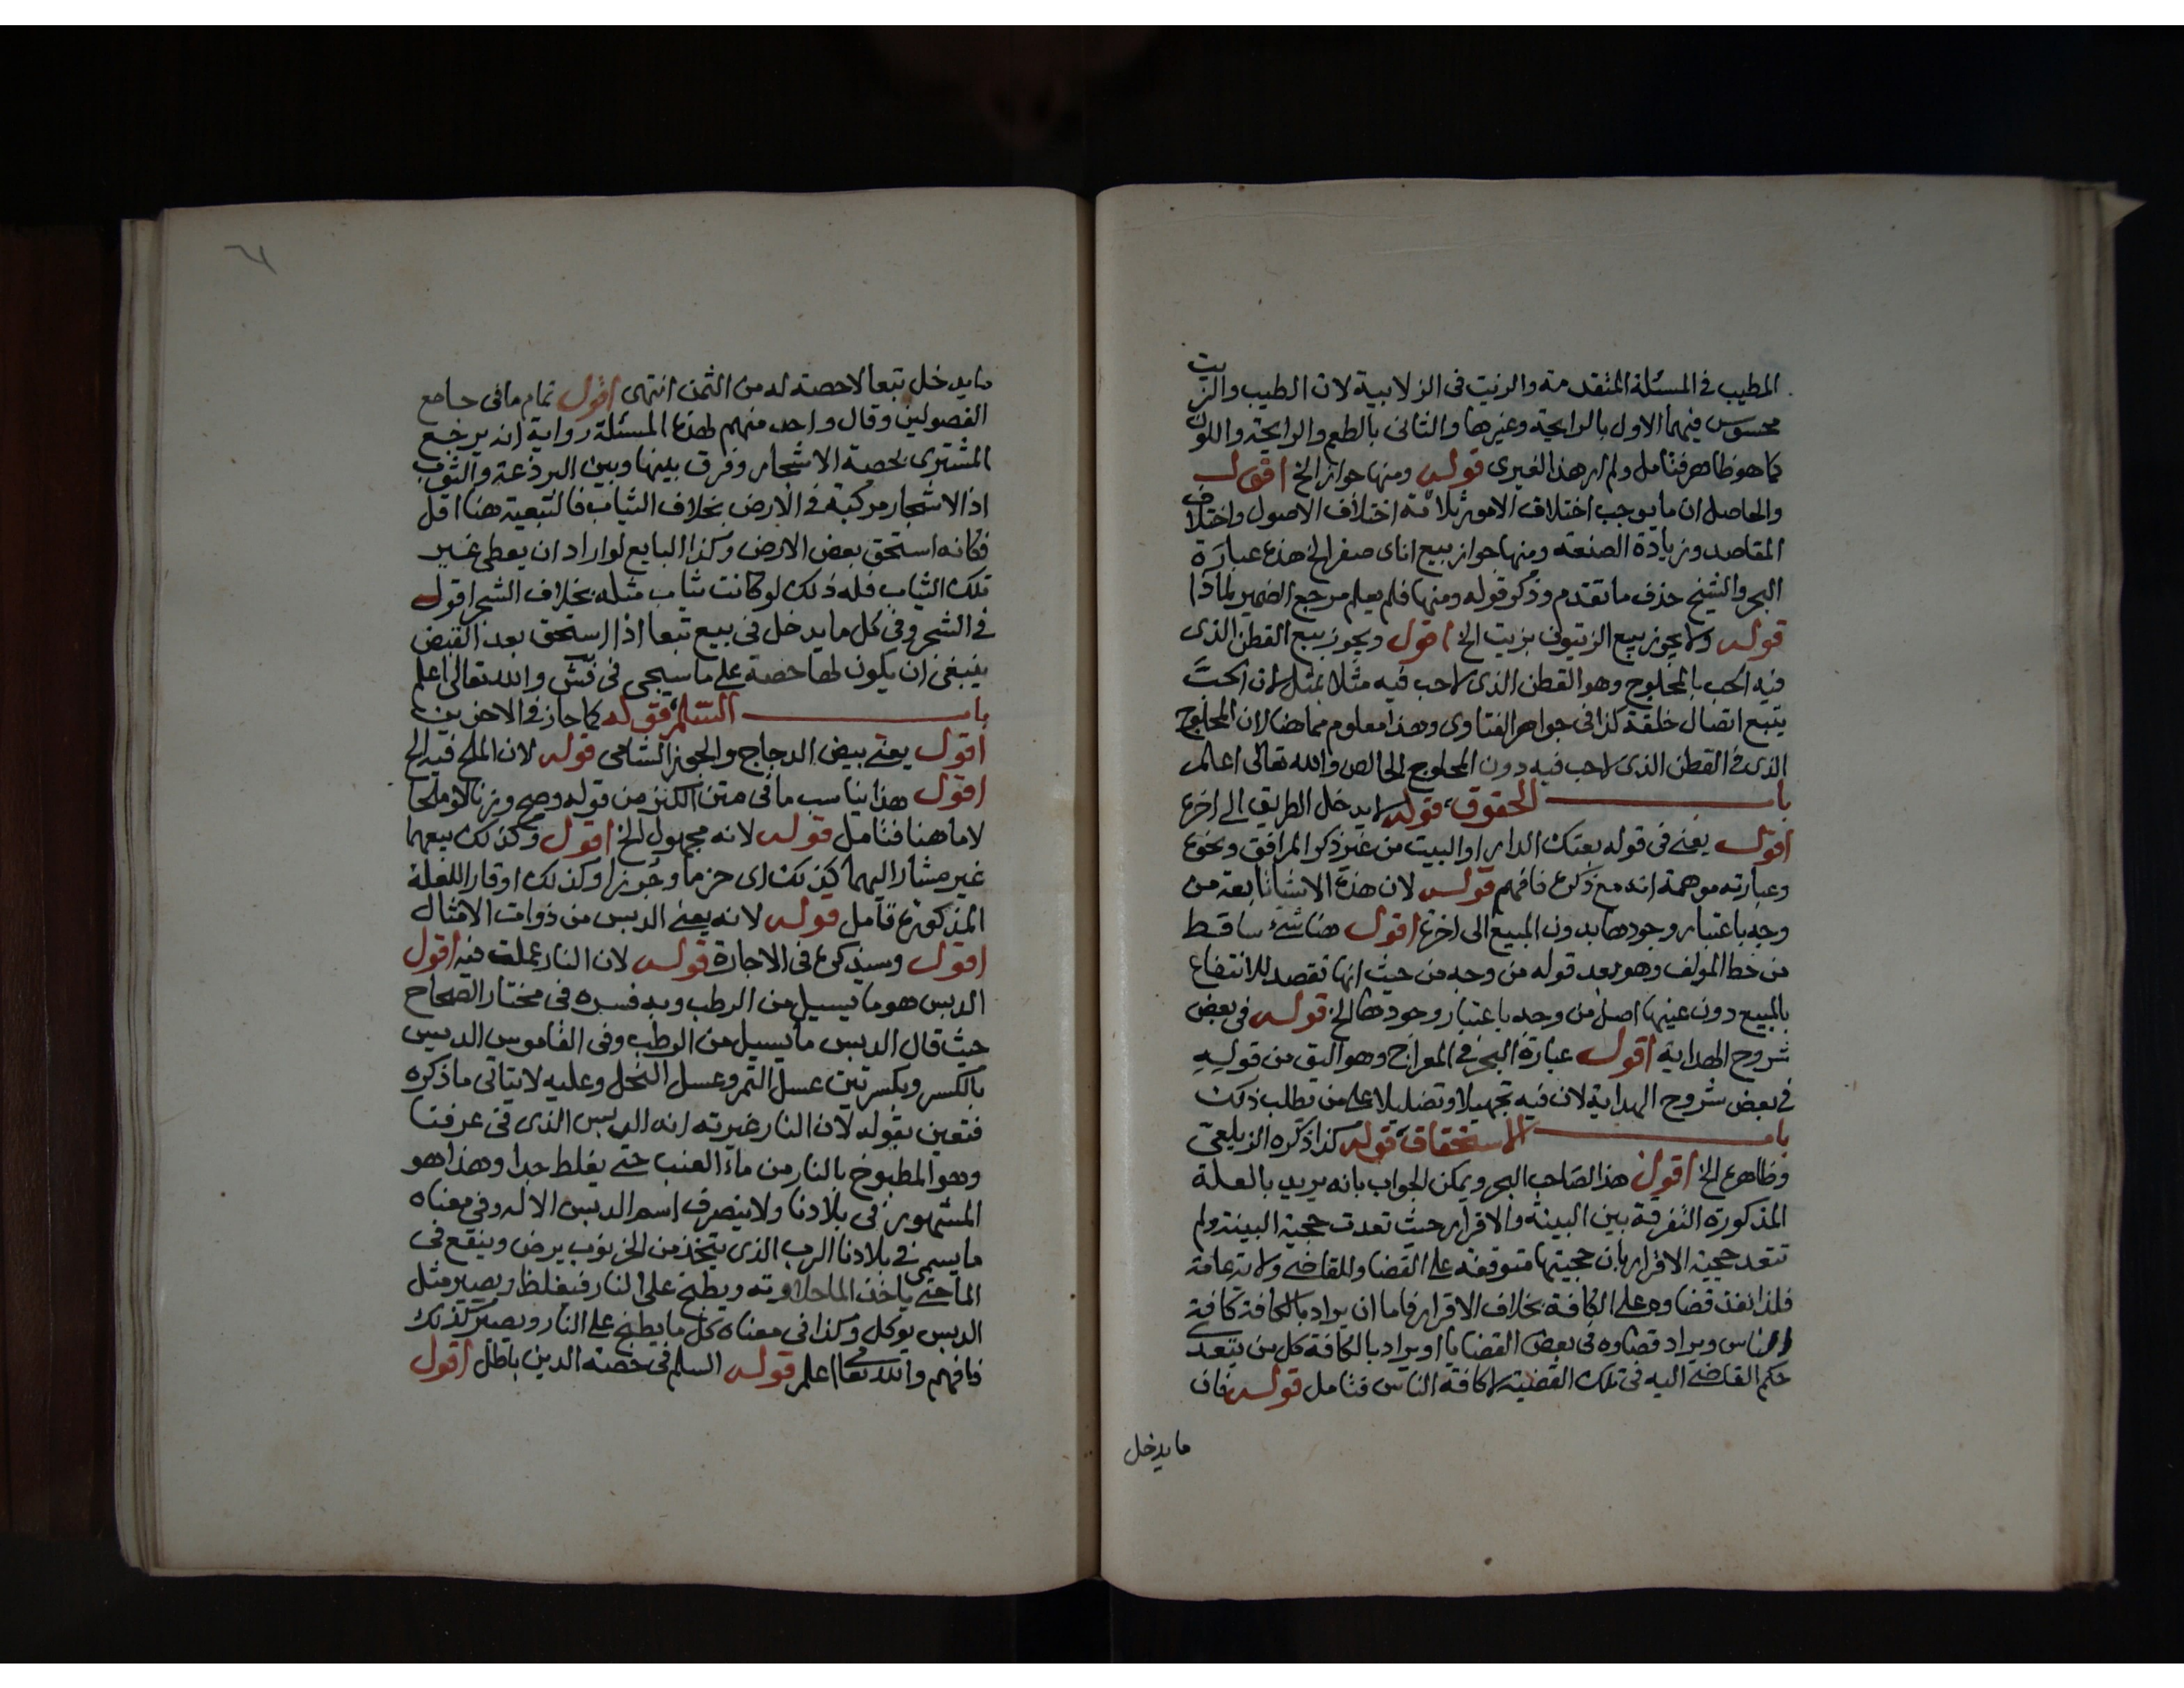 المطيب في المسئلة المتقدمة والزيت في الزلابية لان الطيب والزيت
محسوس فيهما الاول بالرايحة وغيرها والثاني بالطعم والرايحة واللون
كما هو ظاهر فتامل ولم ار هذا لغيري قوله ومنها جواز الخ اقول
والحاصل ان ما يوجب اختلاف الامور ثلاثة اختلاف الاصول واختلاف
المقاصد وزيادة الصنعة ومنها جواز بيع اناى صفر الخ هذه عبارة
البحر والشيخ حذف ما تقدم وذكر قوله ومنها فلم يعلم مرجع الضمير لماذا
قوله ولا يجوز بيع الزيتون بزيت الخ اقول ويجوز بيع القطن الذى
فيه الحب بالمحلوج وهو القطن الذى لا حب فيه مثلا بمثل لان الحب
يتبع اتصال خلقة كذا في جواهر الفتاوى وهذا معلوم مما هنا لان المحلوج
الذى في القطن الذى لا حب فيه دون المحلوج الخالص والله تعالى اعلم
باب الحقوق قوله لا يدخل الطريق الى اخره
اقول يعني في قوله بعتك الدار او البيت من غير ذكر المرافق ونحوه
وعبارته موهمة انه مع ذكره فافهم قوله لان هذه الاشيا تابعة من
وجه باعتبار وجودها بدون المبيع الى اخره اقول هنا شئ ساقط
من خط المولف وهو بعد قوله من وجه من حيث انها تقصد للانتفاع
بالمبيع دون عينها اصل من وجه باعتبار وجودها الخ قوله في بعض
شروح الهداية اقول عبارة البحر في المعراج وهو اليق من قوله
في بعض شروح الهداية لان فيه تجهيلا وتضليلا على من يطلب ذلك
باب الاستحقاق قوله كذا ذكره الزيلعي
وظاهره الخ اقول هذا لصاحب البحر ويمكن الجواب بانه يريد بالعلة
المذكورة التفرقة بين البينة والاقرار حيث تعدت حجية البينة ولم
تتعد حجية الاقرار بان حجيتها متوقفة على القضا وللقاضي ولاية عامة
فلذا نفذ قضاوه على الكافة بخلاف الاقرار فاما ان يراد بالكافة كافة
الناس ويراد قضاوه في بعض القضايا او يراد بالكافة كل من يتعدى
حكم القاضي اليه في تلك القضية لا كافة الناس فتامل قوله فان
ما يدخل
ما يدخل تبعا لا حصة له من الثمن انتهى اقول تمام ما في جامع
الفصولين وقال واحد منهم لهذه المسئلة رواية انه يرجع
المشترى بحصة الاشجار وفرق بينها وبين البرذعة والثوب
اذ الاشجار مركبة في الارض بخلاف الثياب فالتبعية هنا اقل
فكانه استحق بعض الارض وكذا البايع لو اراد ان يعطى غير
تلك الثياب فله ذلك لو كانت ثياب مثله بخلاف الشجر اقول
في الشجر وفي كل ما يدخل في بيع تبعا اذا استحق بعد القبض
ينبغي ان يكون لها حصة على ما سيجى في فش والله تعالى اعلم
باب السلم قوله كما جاز في الاخرين
اقول يعني بيض الدجاج والجوز الشامى قوله لان الملح فيه الخ
اقول هذا يناسب ما في متن الكنز من قوله وصح وزنا لو ملحا
لا ما هنا فتامل قوله لانه مجهول الخ اقول وكذلك بيعهما
غير مشار اليهما كذلك اى حزما وجرزا وكذلك اوقار اللفلة
المذكورة تامل قوله لانه يعنى الدبس من ذوات الامثال
اقول وسيذكره في الاجارة قوله لان النار عملت فيه اقول
الدبس هو ما يسيل من الرطب وبه فسره في مختار الصحاح
حيث قال الدبس ما يسيل من الرطب وفى القاموس الدبس
بالكسر وبكسرتين عسل التمر وعسل النحل وعليه لا يتاتى ما ذكره
فتعين بقوله لان النار غيرته انه الدبس الذى في عرفنا
وهو المطبوخ بالنار من ماء العنب حتى يغلظ جدا وهذا هو
المشهور في بلادنا ولا ينصرف اسم الدبس الا له وفي معناه
ما يسمى في بلادنا الرب الذى يتخذ من الخرنوب يرض وينقع في
الما حتى ياخذ الما حلاوته ويطبخ على النار فيغلظ ويصير مثل
الدبس يوكل وكذا في معناه كل ما يطبخ على النار ويصير كذلك
فافهم والله تعالى اعلم قوله السلم في حصة الدين باطل اقول